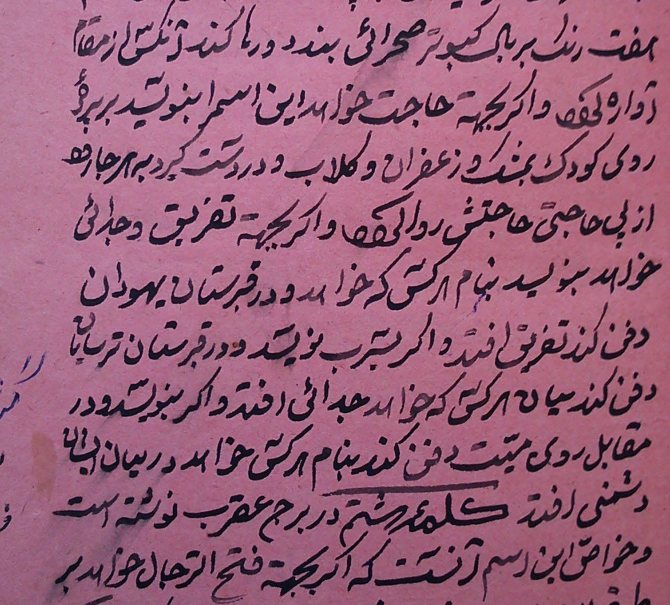 هفت رنك بر بال کبوتر صحرائی بندد و رها کند آنکس از مقام
آواره کردد و اکر بجهة حاجت خواهد این اسم را بنویسد بر پردۀ
روی کودك بمشك و زعفران و کلاب و در دست کیرد به هر جا رود
از پی حاجتی حاجتش روا کردد و اکر بجهة تفریق و جدائی
خواهد بنویسد بنام هر کس که خواهد و در قبرستان یهودان
دفن کند تفریق افتد و اکر بسرب نویسد و در قبرستان ترسایان
دفن کند میان هر کس که خواهد جدائی افتد و اکر بنویسد و در
مقابل روی میّت دفن کند بنام هر کس خواهد در میان ایشان
دشمنی افتد کلمۀ هشتم در برج عقرب نوشته است
و خواصّ این اسم آنست که اکر بجهة فتح الرجال خواهد بر